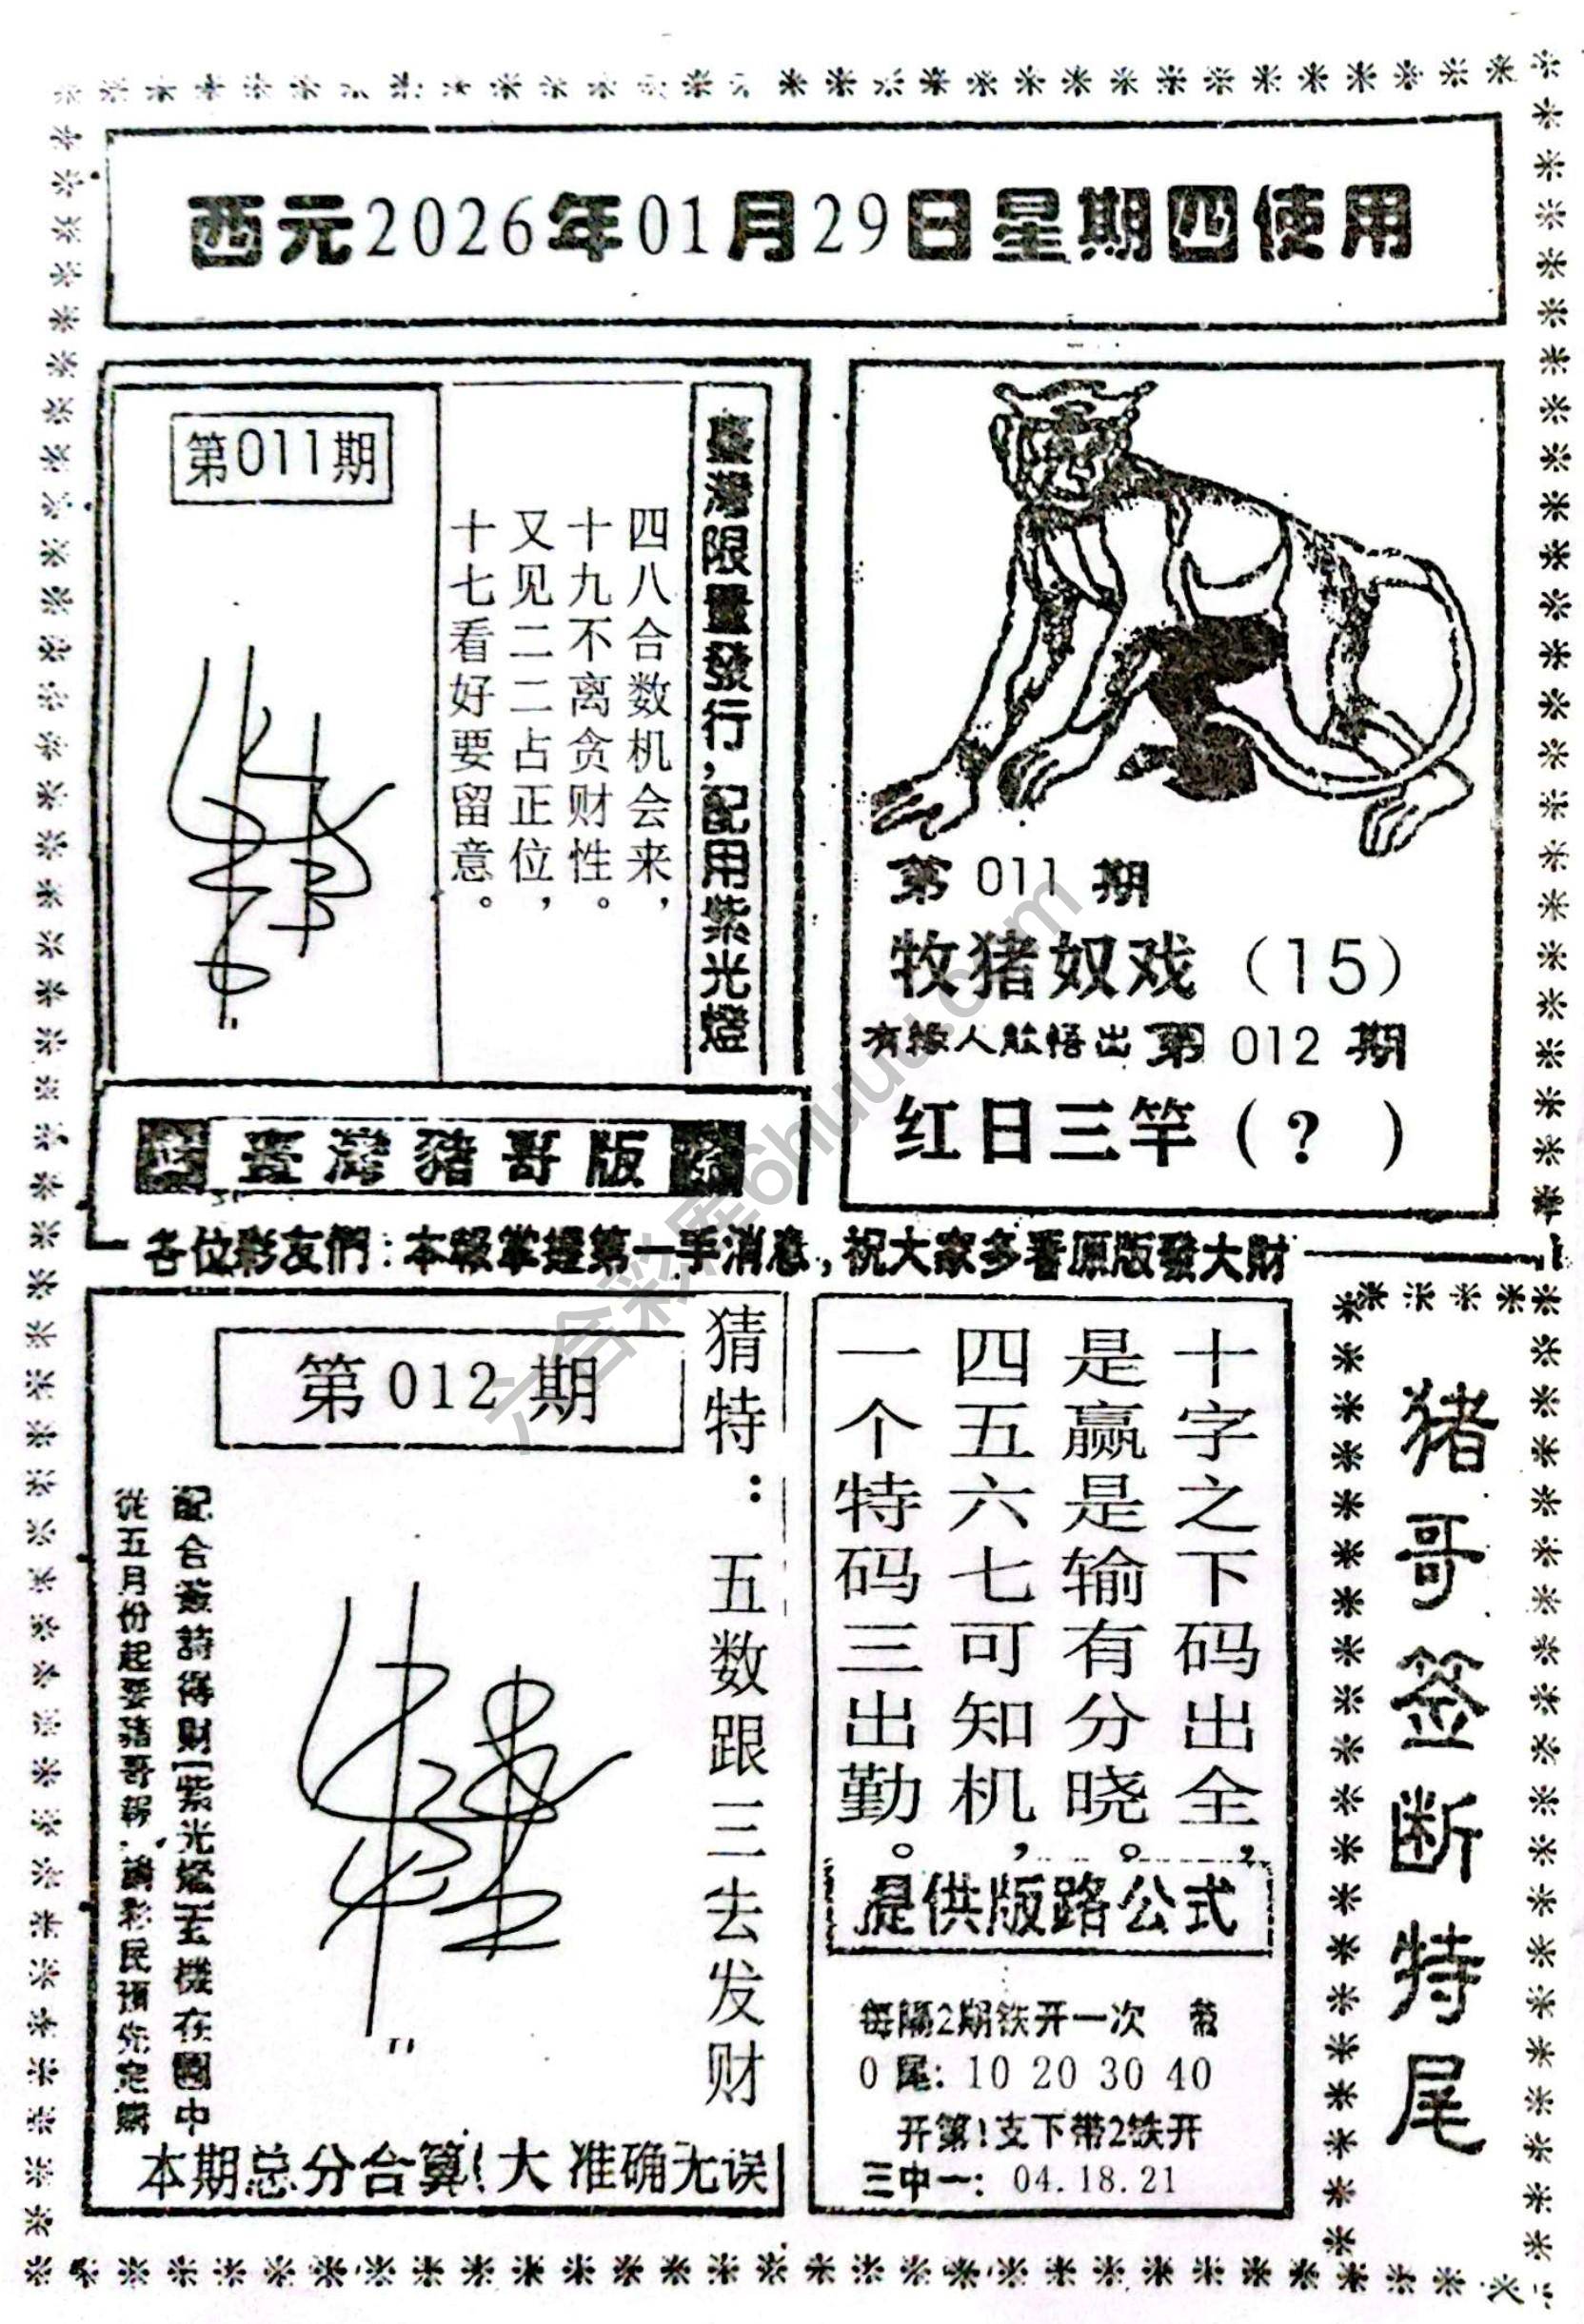 西元2026年01月29日星期四使用
第011期
臺灣限量發行，配用紫光燈
四八合数机会来，
十九不离贪财性。
又见二二占正位，
十七看好要留意。
臺灣豬哥版
第 011 期
牧猪奴戏（15）
有缘人能悟出第 012 期
红日三竿（？）
各位彩友們：本報掌握第一手消息，祝大家多看原版發大財
第012期
猜特：五数跟三去发财
配合簽詩得财[紫光燈]玄機在圖中
從五月份起要豬哥報，請彩民預先定購
本期总分合算！大 准确无误
十字之下码出全，
是赢是输有分晓。
四五六七可知机，
一个特码三出勤。
提供版路公式
每隔2期铁开一次 带
0尾：10 20 30 40
开第1支下带2铁开
三中一：04.18.21
猪哥签断特尾
六合彩库6huuu.com